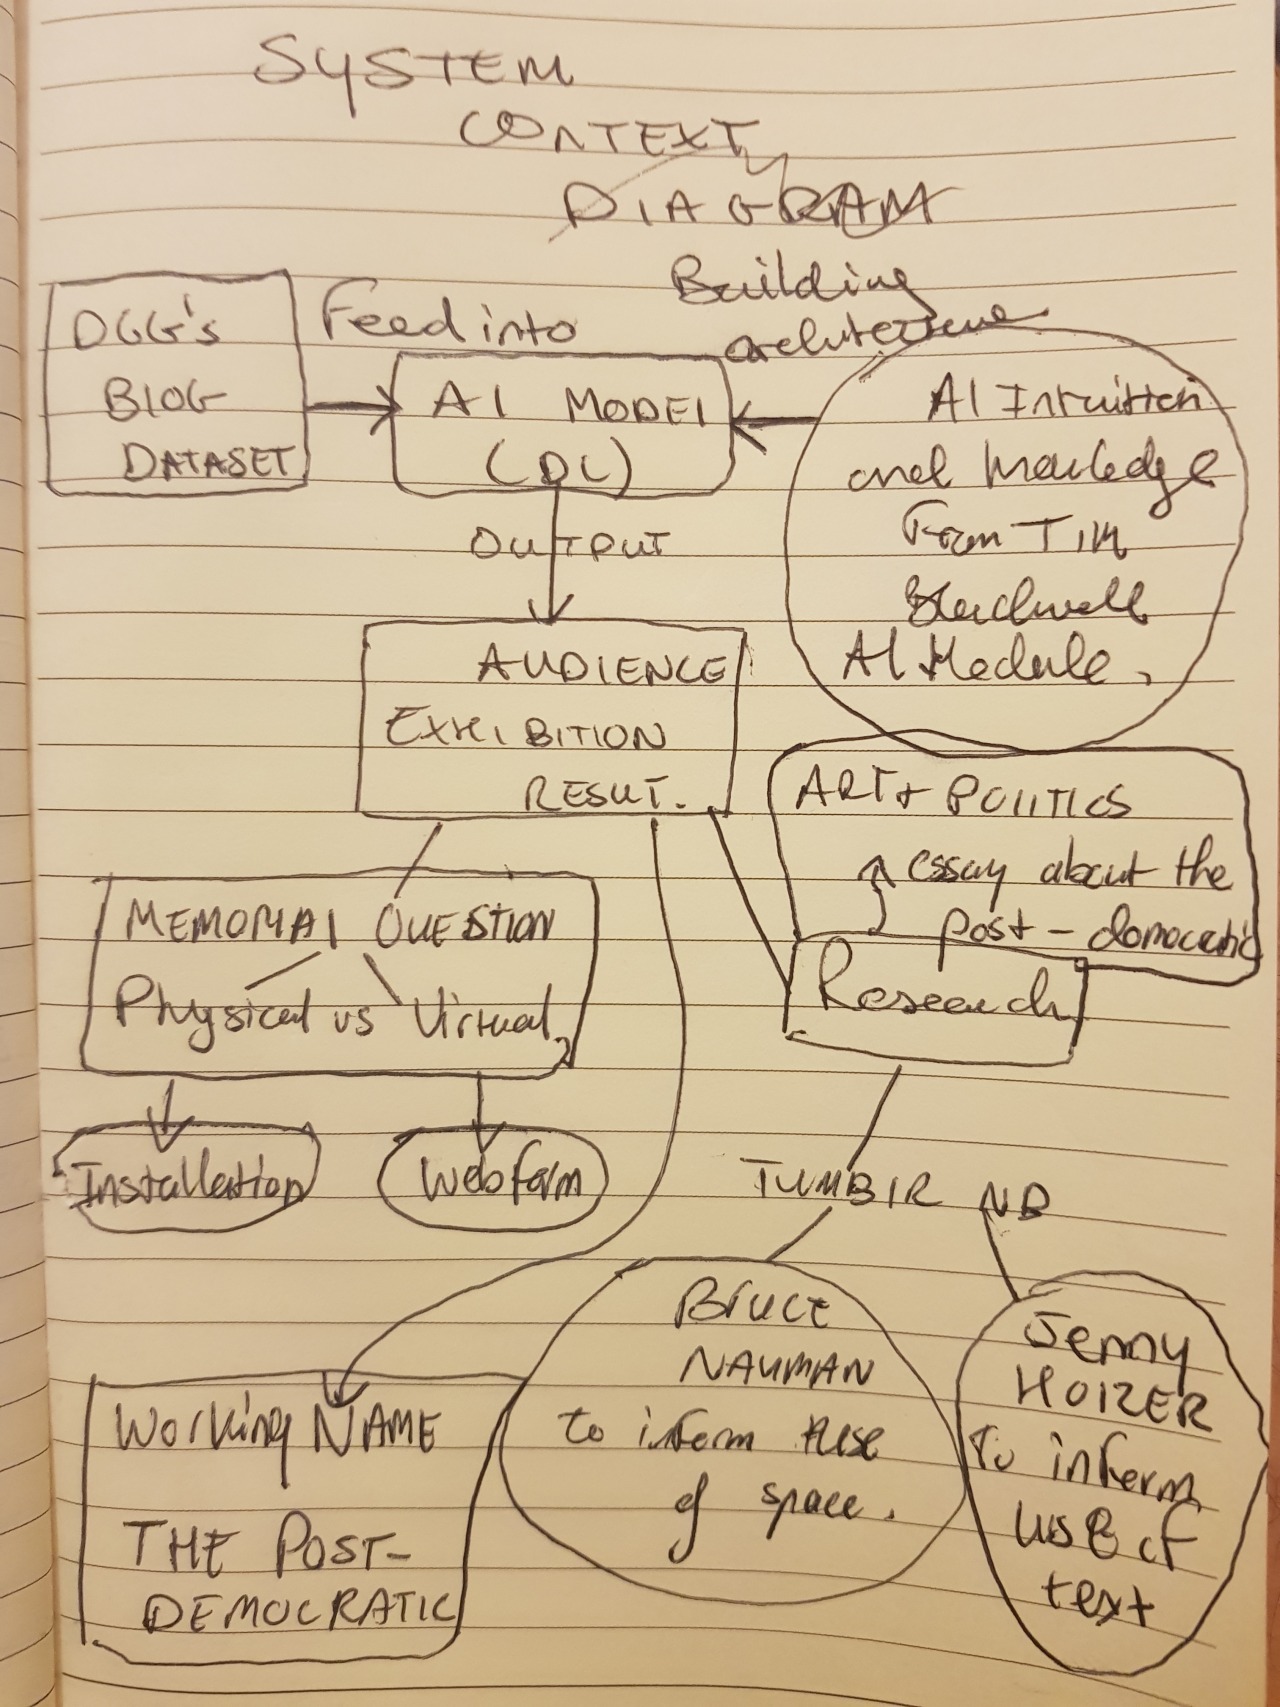 SYSTEM
CONTEXT
DIAGRAM
Building
architecture
DGG's
BLOG
DATASET
Feed into
AI MODEL
(DL)
AI Intuition
and knowledge
From TIM
Blackwell
AI Module.
OUTPUT
AUDIENCE
EXHIBITION
RESULT.
ART + POLITICS
essay about the
post-democratic
Research
MEMORIAL QUESTION
Physical vs Virtual
Installation
Webform
TUMBLR NB
BRUCE
NAUMAN
to inform
of space.
Jenny
HOLZER
To inform
USE OF
text
Working NAME
THE POST-
DEMOCRATIC